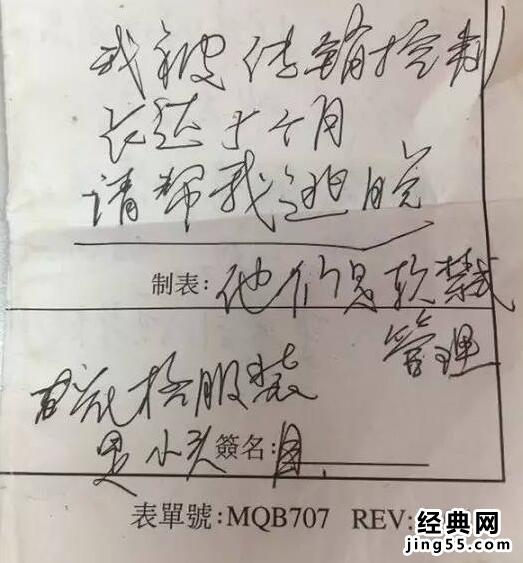 我被传销控制
长达十个月
请帮我逃脱
制表: 他们是软禁式
管理
服装
是小头 簽名: 目
表單號:MQB707 REV:
经典网
jing55.com